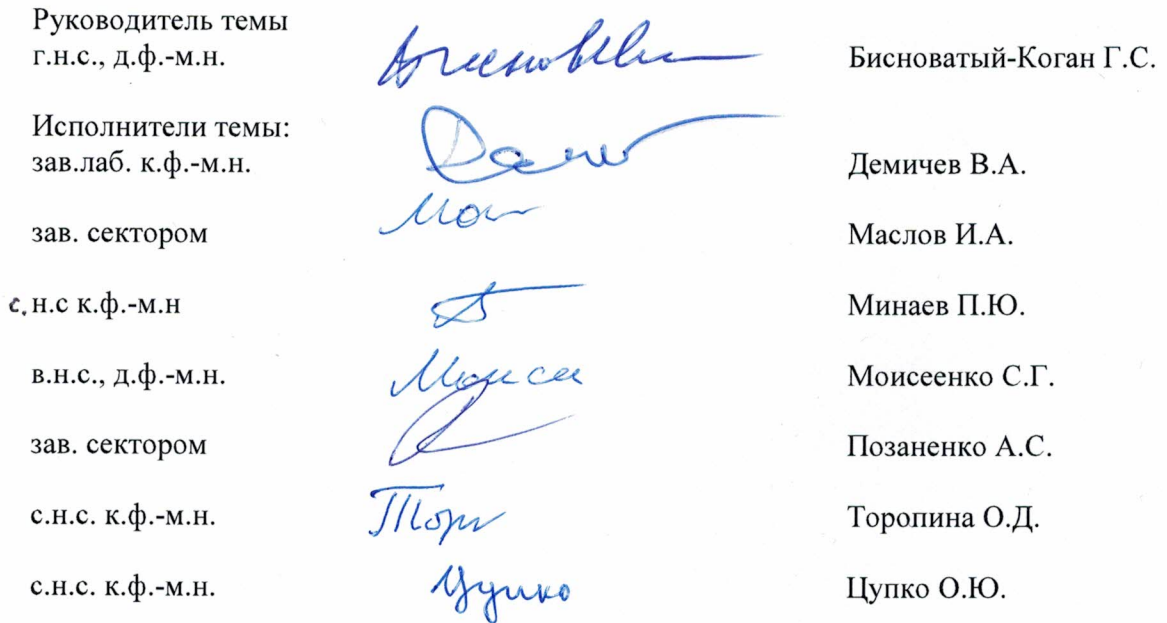 Руководитель темы
г.н.с., д.ф.-м.н. Бисноватый-Коган Г.С.
Исполнители темы:
зав.лаб. к.ф.-м.н. Демичев В.А.
зав. сектором Маслов И.А.
с.н.с к.ф.-м.н Минаев П.Ю.
в.н.с., д.ф.-м.н. Моисеенко С.Г.
зав. сектором Позаненко А.С.
с.н.с. к.ф.-м.н. Торопина О.Д.
с.н.с. к.ф.-м.н. Цупко Цупко О.Ю.